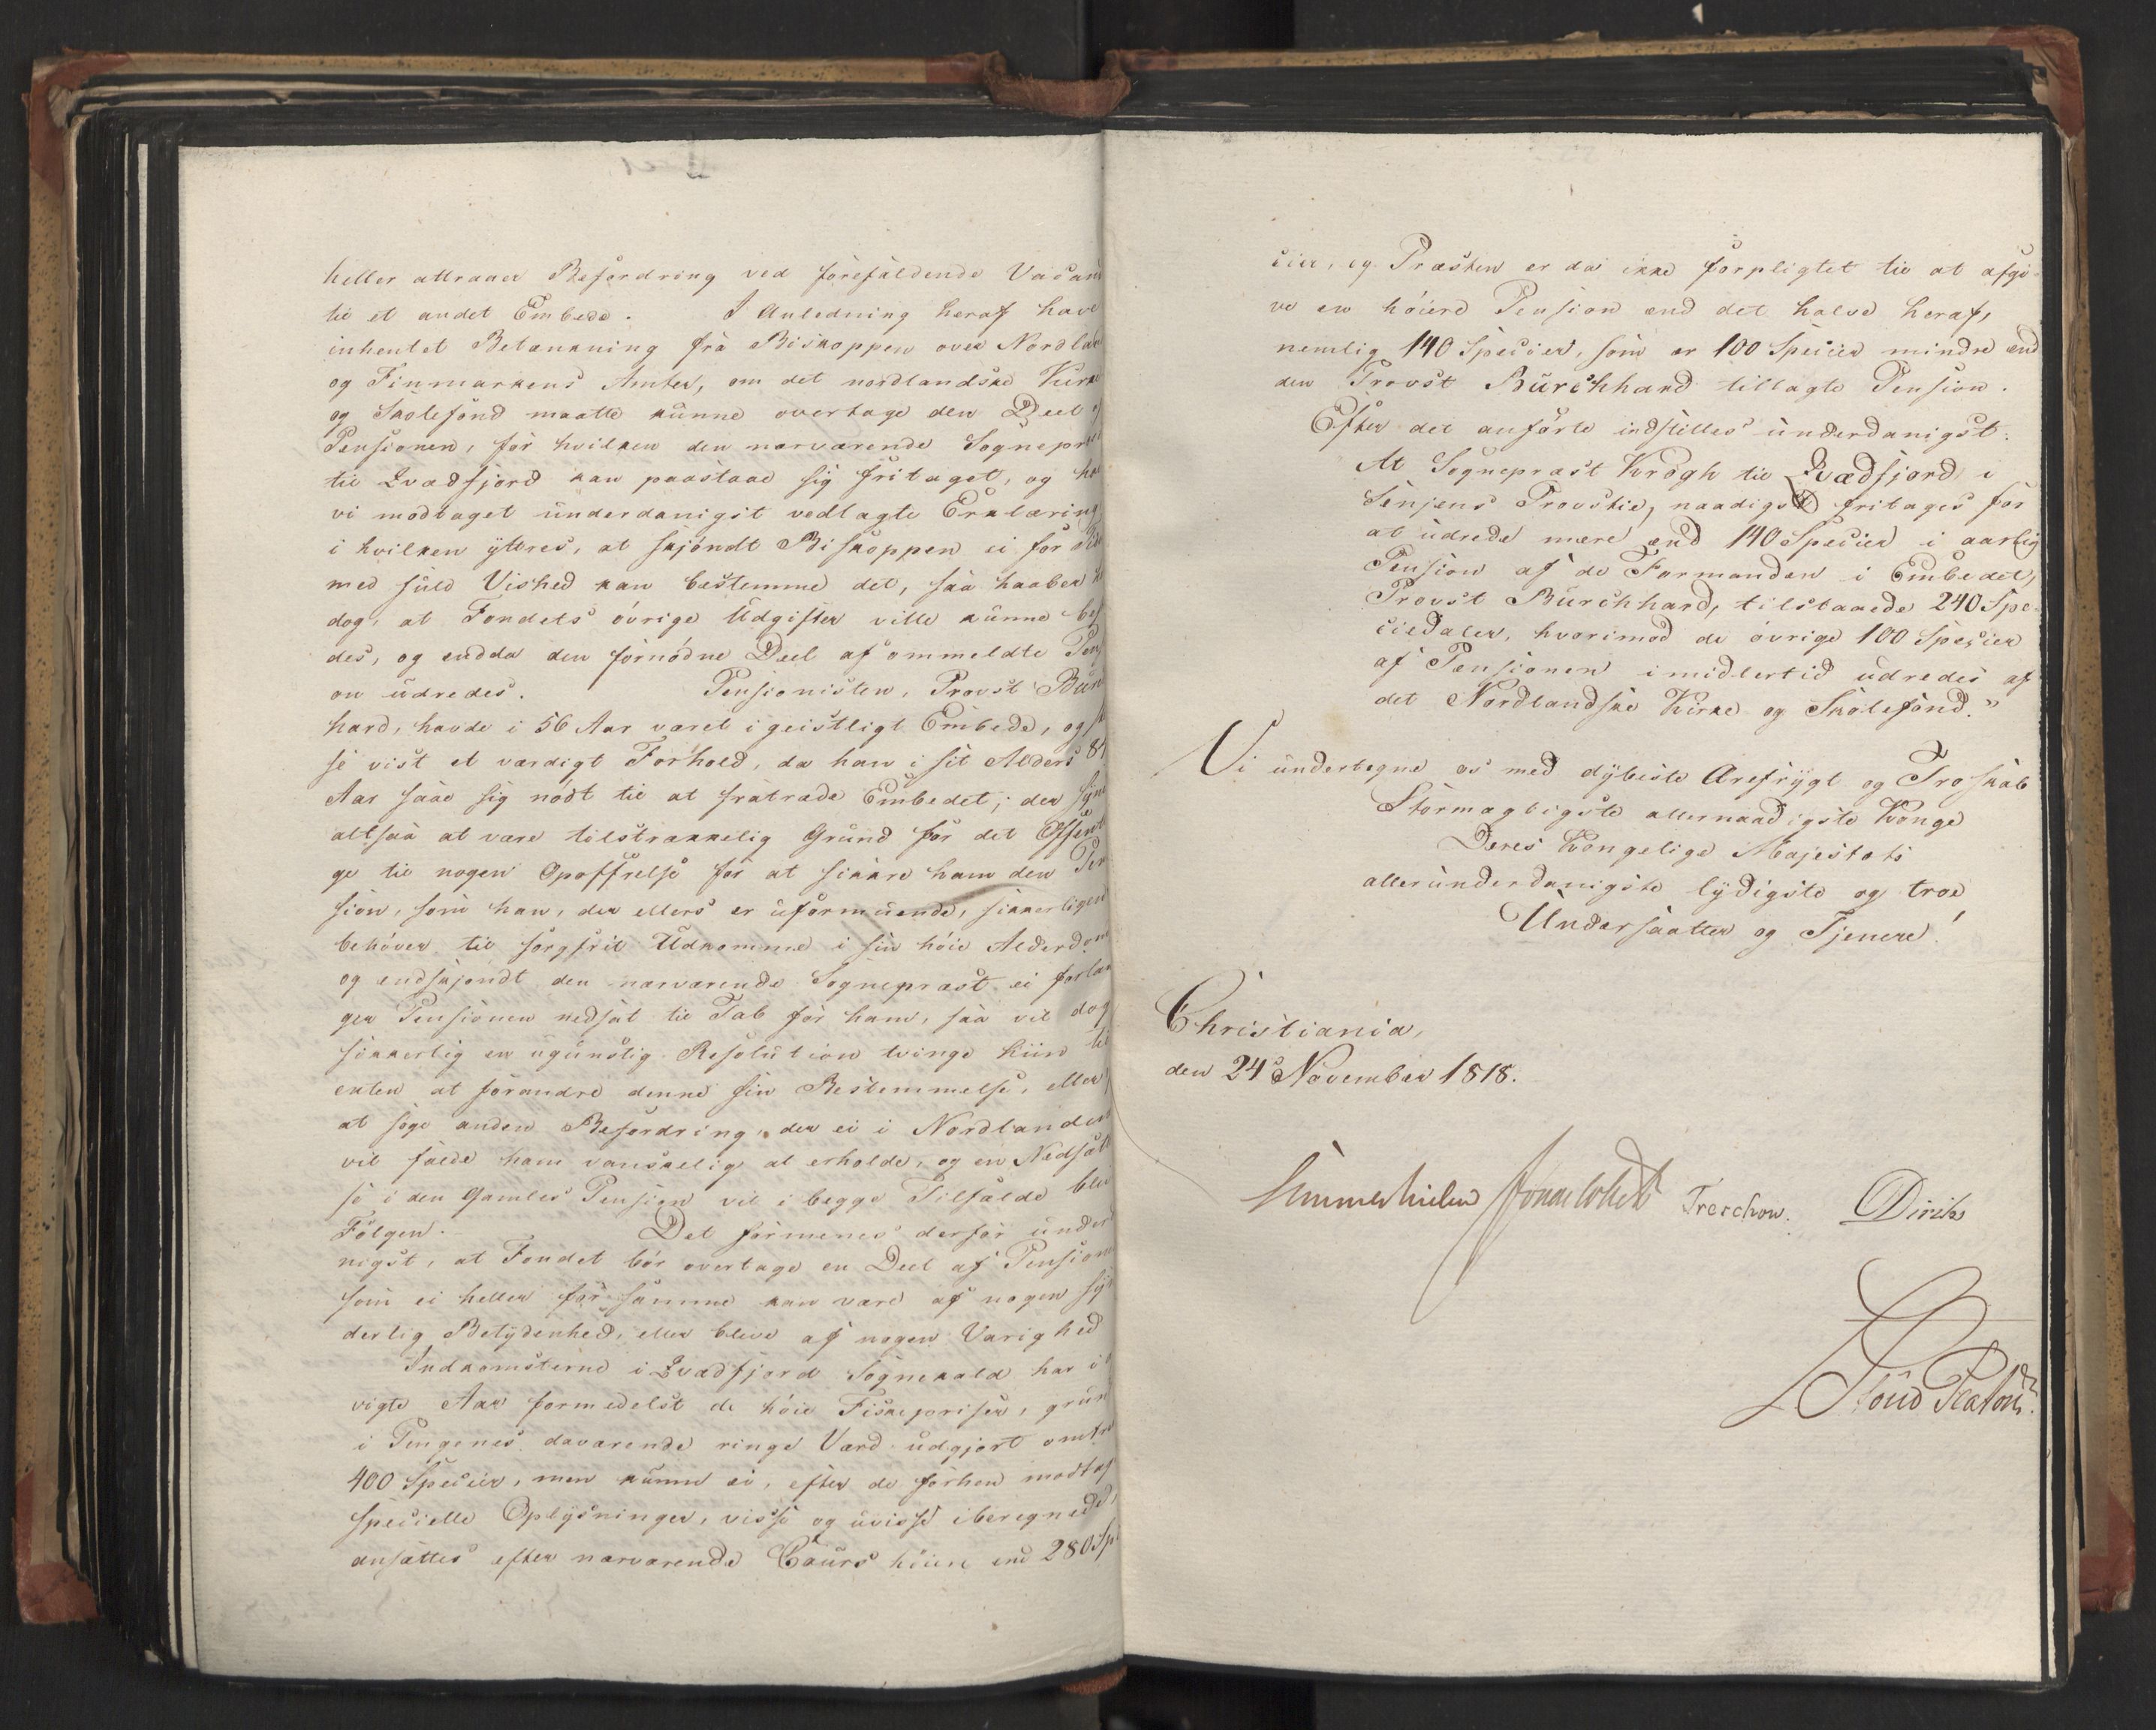 heller attraaer Befordring ved forefaldende Vacan
til et andet Embede. I Anledning heraf have
inhentet Betænkning fra Biskoppen over Nordlan
og Finmarkens Amter, om det nordlandske Kirke
og Skolefond maatte kunne overtage den Deel af
Pensionen, for hvilken den nærværende Sognepræ
til Qvædfjord kan paastaae sig fritaget, og ha
vi modtaget underdanigst vedlagte Erklæring
i hvilken yttres, at skjöndt Biskoppen ei for
med fuld Vished kan bestemme det, saa haaber
dog, at Fondets övrige Udgifter ville kunne be
des, og endda den fornödne Deel af ommeldte Pen
on udredes. Pensionisten, Provst Burc
hard, havde i 56 Aar været i geistligt Embede, og
se vist et værdigt Forhold, da han i sit Alders 81
Aar saae sig nödt til at fratræde Embedet; der syne
altsaa at være tilstrækkelig Grund for det Offent
ge til nogen Opoffrelse for at sikkre ham den Pen
sion, som han, der ellers er uformuende, sikkerligen
behöver til sorgfrit Udkomme i sin höie Alderdom
og endskjöndt den nærværende Sognepræst ei forlan
ger Pensionen nedsat til Tab for ham, saa vil dog
sikkerlig en ugunstig Resolution tvinge hiin til
enten at forandre denne sin Bestemmelse, eller
at söge anden Befordring, der ei i Nordlanden
vil falde ham vanskelig at erholde, og en Nedsætt
se i den Gamles Pension vil i begge Tilfælde blive
Fölgen. Det formenes derfor under
nigst, at Fondet bör overtage en Deel af Pensionen
som ei heller for samme kan være af nogen syn
derlig Betydenhed, eller blive af nogen Varighed
Indkomsterne i Qvædfjord Sognekald har i
vigte Aar formedelst de höie Fiskepriser, grun
i Pengenes daværende ringe Værd udgjort omtre
400 Specier, men kunne ei, efter de forhen modtag
specielle Oplysninger, visse og uvisse iberegnede,
ansættes efter nærværende Cours höiere end 280 Spe
cier, og Præsten er da ikke forpligtet til at afgi-
ve en höiere Pension end det halve heraf,
nemlig 140 Specier, som er 100 Specier mindre end
den Provst Burchhard tillagte Pension.
Efter det anförte indstilles underdanigst:
At Sognepræst Krogh til Qvædfjord i
Senjens Provstie, naadigst fritages for
at udrede mere end 140 Specier i aarlig
Pension af de Formanden i Embedet,
Provst Burchhard, tilstaaede 240 Spe-
ciedaler, hvorimod de övrige 100 Specier
af Pensionen imidlertid udredes af
det Nordlandske Kirke og Skolefond."
Vi undertegne os med dybeste Ærefrygt og Troskab
Stormægtigste allernaadigste Konge
Deres Kongelige Majestæts
allerunderdanigste lydigste og troe
Undersaatter og Tjenere!
Christiania,
den 24de November 1818.
Sommerhielm Jonas Collett Treschow. Diriks
Stoud Platou